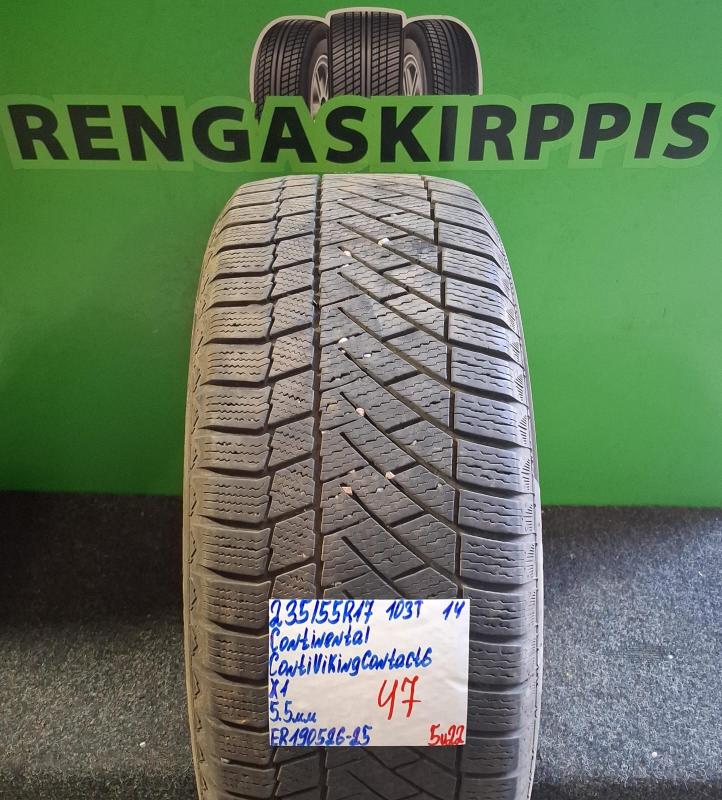 RENGASKIRPPIS
235/55R17 103T 14
Continental
ContiVikingContact6
X1
5.5мм 47
ER190526-25 5u22